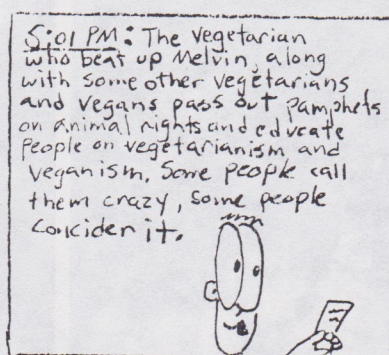 5:01 PM: The vegetarian
who beat up Melvin, along
with some other vegetarians
and vegans pass out pamphets
on animal rights and educate
people on vegetarianism and
veganism. Some people call
them crazy, some people
concider it.